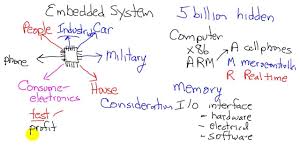 Embedded System
5 billion hidden
People
Industrial
Car
Computer
x86
ARM
A cellphones
M microcontrollers
R Real time
phone
Military
Consumer
electronics
House
memory
Considerations
I/o interface
- hardware
- electrical
- software
test
profit